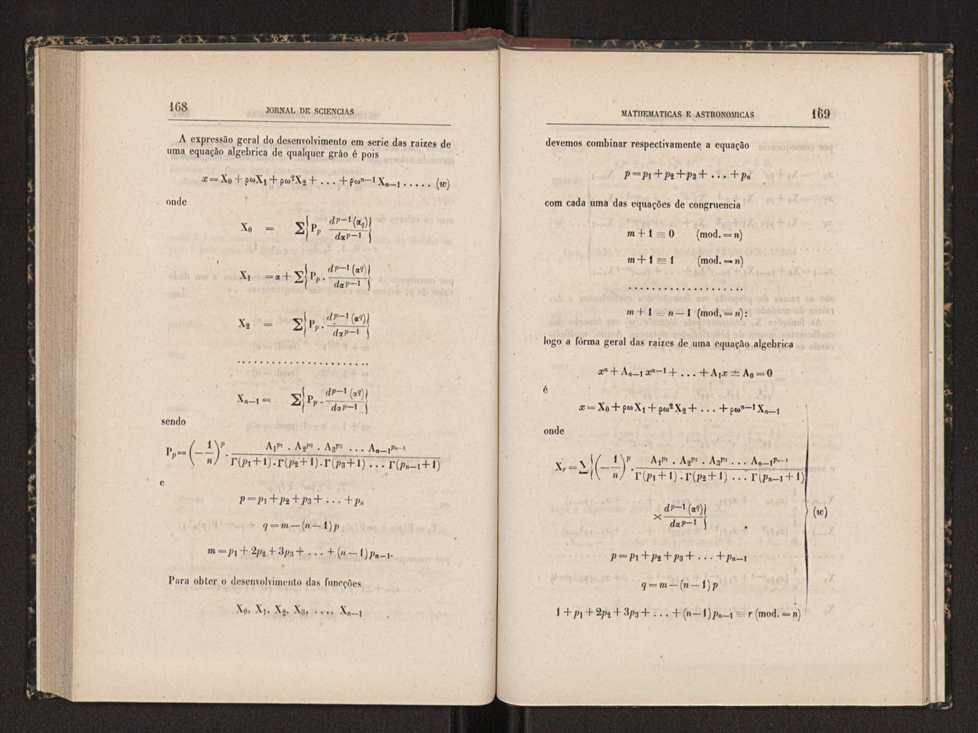 168
JORNAL DE SCIENCIAS
A expressão geral do desenvolvimento em serie das raizes de
uma equação algebrica de qualquer gráo é pois
x = X₀ + ρωX₁ + ρω²X₂ + . . . + ρωⁿ⁻¹ Xₙ₋₁ . . . . . (w)
onde
X₀ = Σ { Pₚ d^{p−1}(α_q) / dα^{p−1} }
X₁ = α + Σ { Pₚ . d^{p−1}(α^q) / dα^{p−1} }
X₂ = Σ { Pₚ . d^{p−1}(α^q) / dα^{p−1} }
. . . . . . . . . . . . . . . . . . . . . .
Xₙ₋₁ = Σ { Pₚ . d^{p−1}(α^q) / dα^{p−1} }
sendo
Pₚ = (− 1/n)^p . A₁^{p₁} . A₂^{p₂} . A₃^{p₃} . . . Aₙ₋₁^{pₙ₋₁} / Γ(p₁+1).Γ(p₂+1).Γ(p₃+1) . . . Γ(pₙ₋₁+1)
e
p = p₁ + p₂ + p₃ + . . . + pₙ
q = m — (n — 1) p
m = p₁ + 2p₂ + 3p₃ + . . . + (n — 1) pₙ₋₁.
Para obter o desenvolvimento das funcções
X₀, X₁, X₂, X₃, . . ., Xₙ₋₁
MATHEMATICAS E ASTRONOMICAS
169
devemos combinar respectivamente a equação
p = p₁ + p₂ + p₃ + . . . + pₙ
com cada uma das equações de congruencia
m + 1 ≡ 0 (mod. = n)
m + 1 ≡ 1 (mod. = n)
. . . . . . . . . . . . . . . . . . . .
m + 1 ≡ n — 1 (mod. = n):
logo a fórma geral das raizes de uma equação algebrica
xⁿ + Aₙ₋₁ xⁿ⁻¹ + . . . + A₁x ± A₀ = 0
é
x = X₀ + ρωX₁ + ρω²X₂ + . . . + ρωⁿ⁻¹Xₙ₋₁
onde
Xᵣ = Σ { (− 1/n)^p . A₁^{p₁} . A₂^{p₂} . A₃^{p₃} . . . Aₙ₋₁^{pₙ₋₁} / Γ(p₁+1) . Γ(p₂+1) . . . Γ(pₙ₋₁+1)
× d^{p−1}(α^q) / dα^{p−1} }
(w)
p = p₁ + p₂ + p₃ + . . . + pₙ₋₁
q = m — (n — 1) p
1 + p₁ + 2p₂ + 3p₃ + . . . + (n — 1) pₙ₋₁ ≡ r (mod. = n)